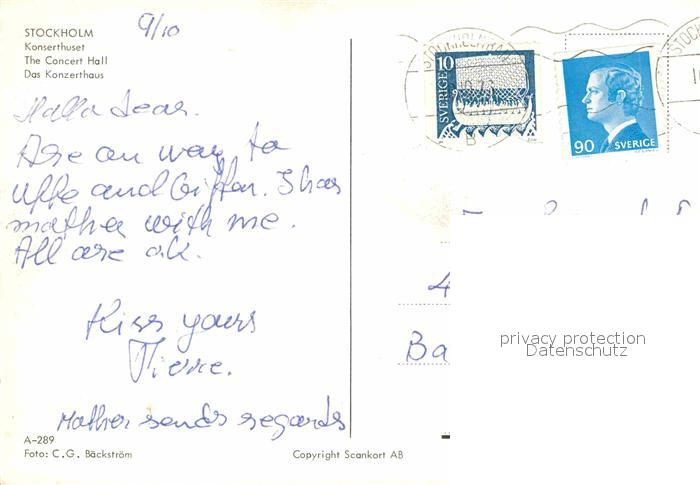 STOCKHOLM
Konserthuset
The Concert Hall
Das Konzerthaus
9/10
Hallo dear.
Are on way to
Uffe and Giffen. I has
mother with me.
All are ok.
Kiss yours
Pierre.
Mother sends regards
A-289
Foto: C.G. Bäckström
Copyright Scankort AB
STOCKHOLM
10
SVERIGE
90
SVERIGE
STOCK
4
Ba
privacy protection
Datenschutz